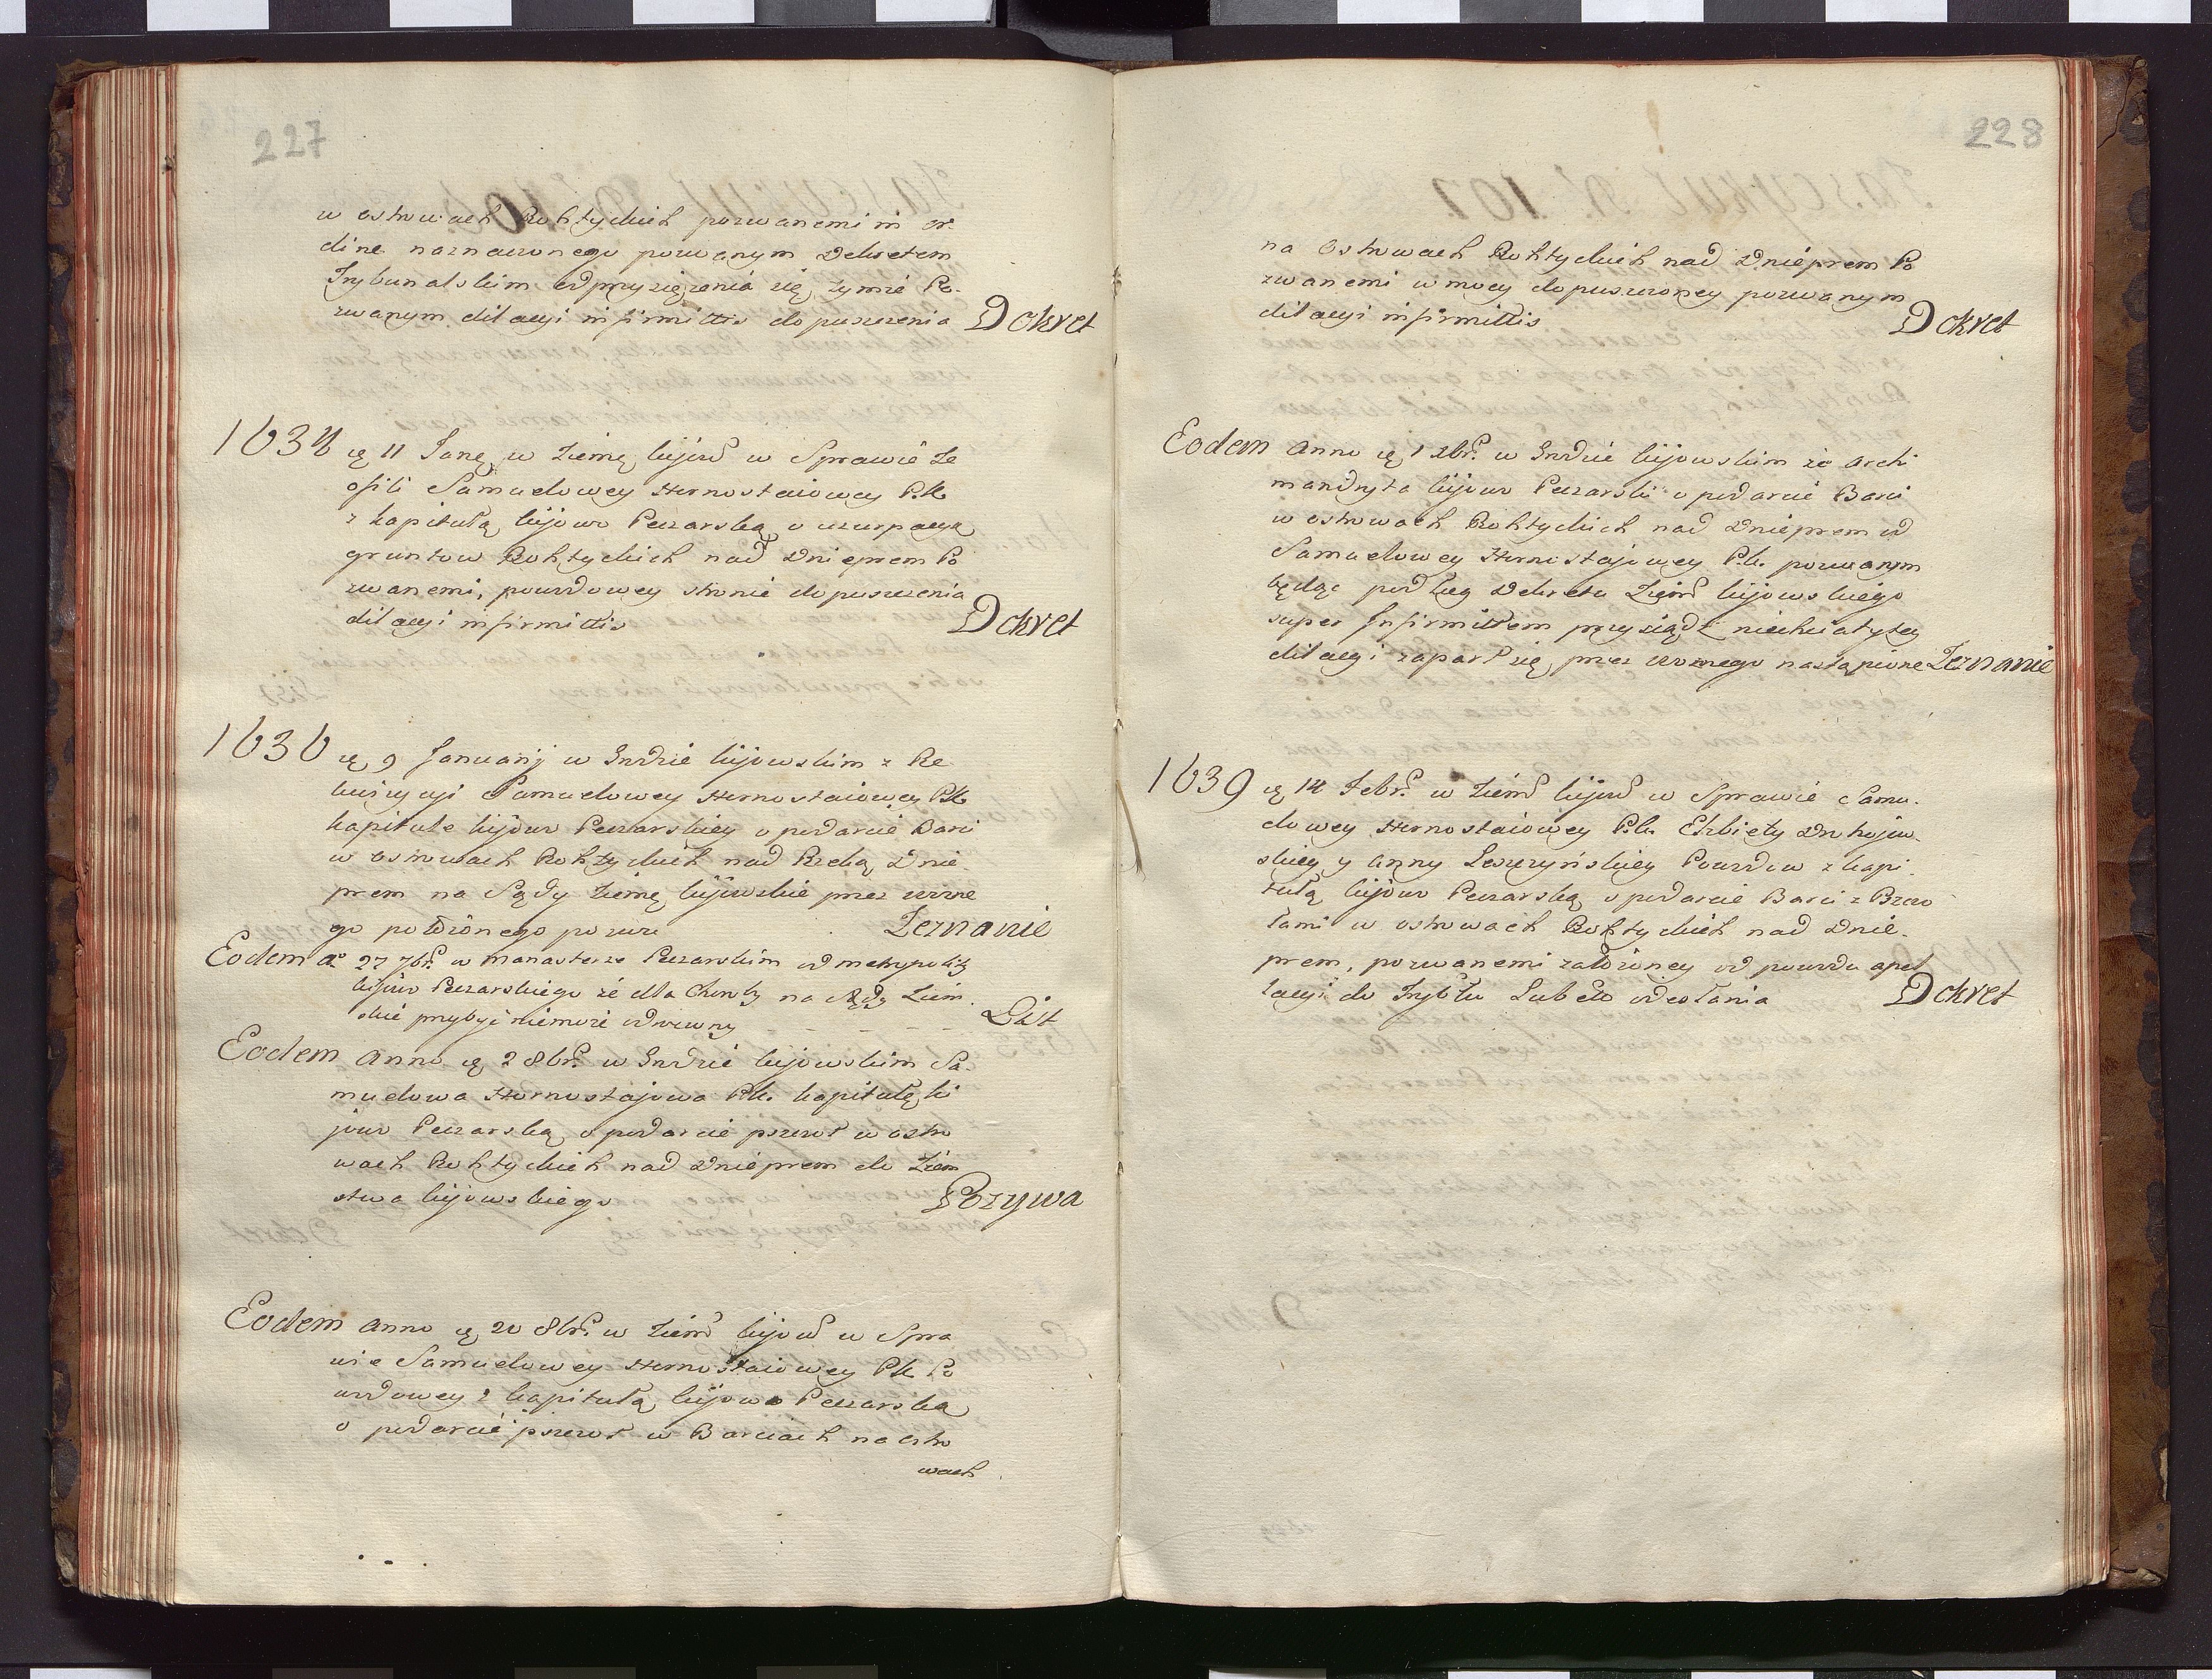 227
w ostrowach Rohtyckich pozwanemi in or-
dine naznaczonego pozwanym Dekretem
Trybunalskim odprzysiężenia się, tymże Po-
zwanym dilacyi infirmitis dopuszczenia Dekret
1634 ę 11 Janę w Ziemę kijow w Sprawie Ze
ofili Samuelowey Hornostaiowey P.K.
z kapitułą kijowo Peczarską o uzurpacyą
gruntow Rohtyckich nad Dnieprem Po
zwanemi, powodowey stronie dopuszczenia
dilacyi infirmitis Dekret
1636 ę 9 Januarij w Grodzie kijowskim z Re
kwizycyi Samuelowey Hornostaiowey PK
kapitule kijowo Peczarskiey o podarcie Barci
w ostrowach Rohtyckich nad Rzeką Dnie
prem na Sądy Ziemę kijowskie przez wozne
go położonego pozwu Zeznanie
Eodem aº 27 7br. w manasterze Peczarskim od metropolity
kijowo Peczarskiego że dla Choroby na Sądy Ziem
skie przybyć niemoże odezwny List
Eodem Anno ę 2 8br. w Grodzie kijowskim Sa-
muelowa Hornostajowa P.K. kapitułę ki
jowo Peczarską o podarcie pszczoł w ostro
wach Rohtyckich nad Dnieprem do Ziem
stwa kijowskiego Pozywa
Eodem Anno ę 20 8br. w Ziem kijow w Spra
wie Samuelowey Hornostaiowey PK Po
wodowey z kapitułą kijowo Peczarską
o podarcie pszczoł w Barciach na ostro
wach
228
na Ostrowach Rohtyckich nad Dnieprem Po
zwanemi w mocy dopuszczoney pozwanym
dilacyi infirmitis Dekret
Eodem Anno ę 1 xbr. w Grodzie kijowskim że Archi
mandryta kijowo Peczarski o podarcie Barci
w ostrowach Rohtyckich nad Dnieprem od
Samuelowey Hornostajowey P.K. pozwanym
będąc podług Dekretu Ziem kijowskiego
super Infirmitatem przysiądź niechciał y tey
dilacyi zaparł się, przez woznego nastąpione Zeznanie
1639 ę 14 Febr. w Ziem kijow w Sprawie Samu-
elowey Hornostaiowey P.K. Elzbiety Drohojow-
skiey y Anny Leszczyńskiey Powodow z kapi-
tułą kijowo Peczarską o podarcie Barci z Pszczo
łami w ostrowach Rohtyckich nad Dnie-
prem, pozwanemi założoney od powodu apel
lacyi do Trybłu Lubelo odesłania Dekret